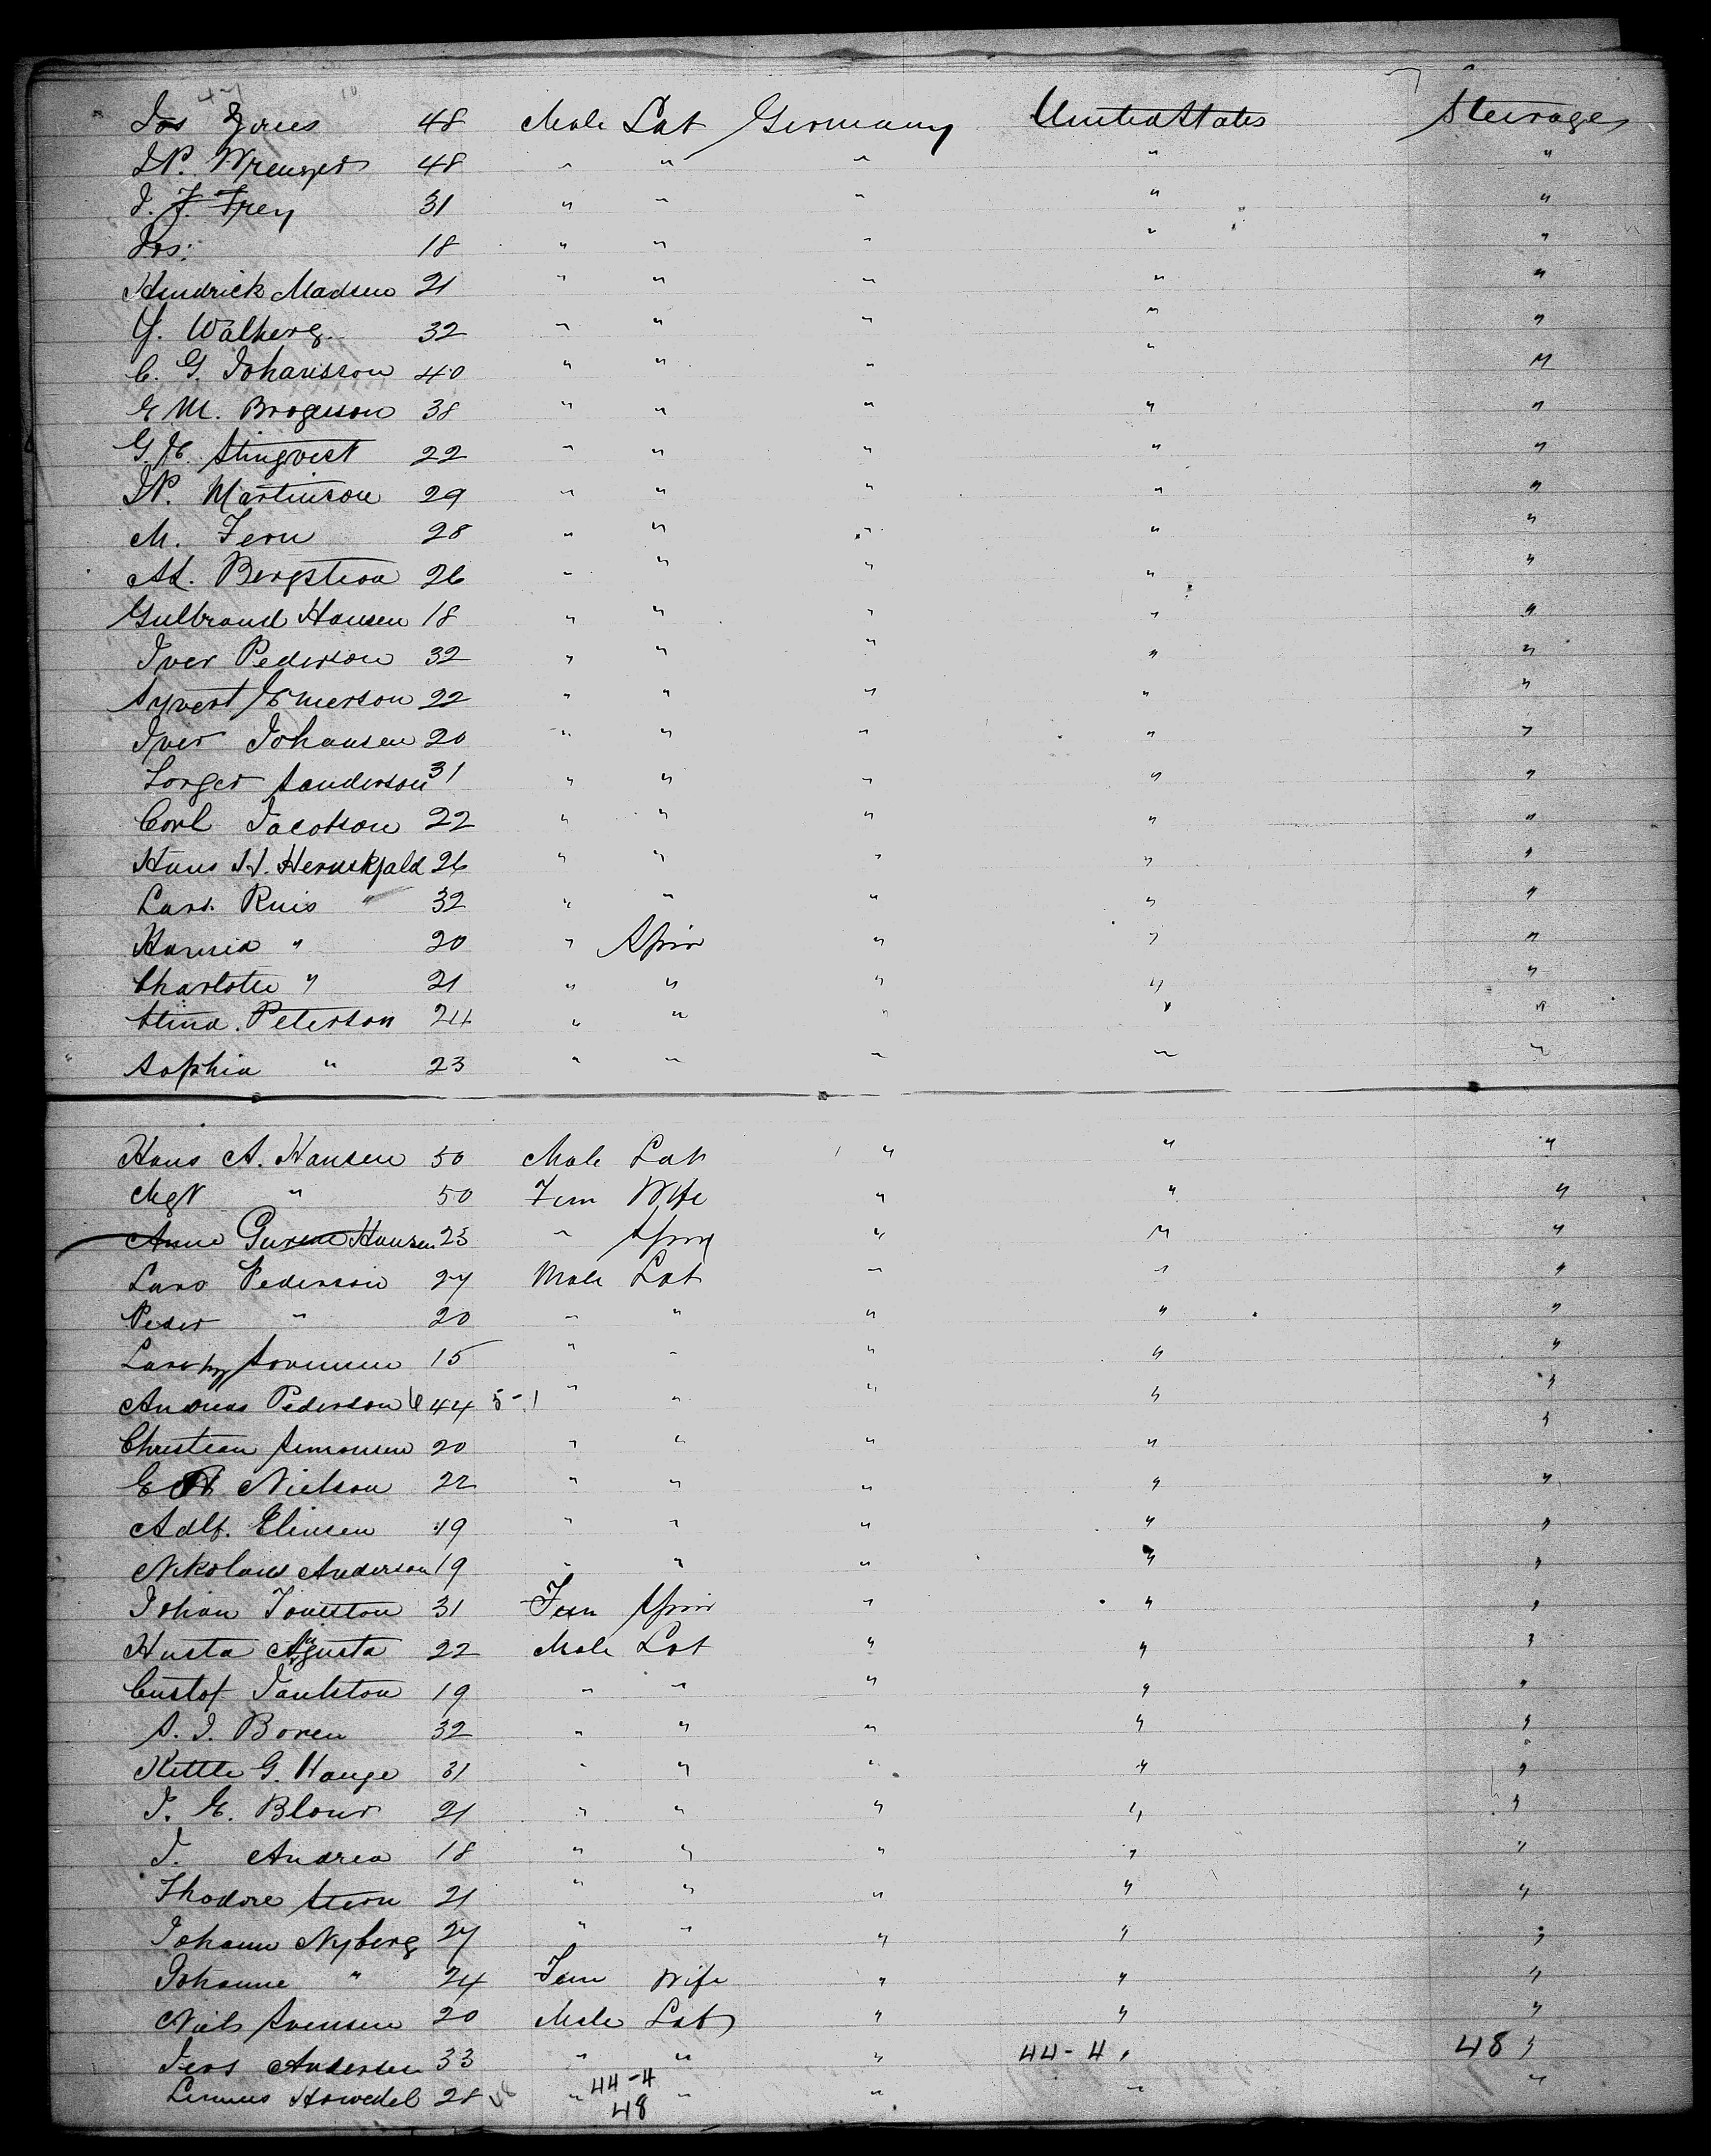 Jos Gries 48 Male Lab Germany United States Steerage
J.P. 48 " " " " "
J. F. Frey 31 " " " " "
Jos: 18 " " " " "
Hendrick Madsen 21 " " " " "
Y. Walberg. 32 " " " " "
C. G. Johansson 40 " " " " "
E M. Brogeson 38 " " " " "
G. H. Stingvest 22 " " " " "
J.P. Martinson 29 " " " " "
M. Fern 28 " " " " "
Ad. Bergstron 26 " " " " "
Gulbrand Hansen 18 " " " " "
Iver Pederson 32 " " " " "
Syvert Emerson 22 " " " " "
Iver Johansen 20 " " " " "
Torger Sanderson 31 " " " " "
Carl Jacobson 22 " " " " "
Hans H. Hernskjald 26 " " " " "
Lars. Ruis " 32 " " " " "
" 20 " Spin " " "
Charlotte " 21 " " " " "
Stina. Peterson 24 " " " " "
Sophia " 23 " " " " "
Hans A. Hansen 50 Male Lab " " "
Mgt " 50 Fem Wife " " "
Anne Gurene Hansen 23 " Spin " " "
Lars Pederson 27 Male Lab " " "
Peder " 20 " " " " "
Lars Sorensen 15 " " " " "
Andreas Pederson 44 5-1 " " " " "
Christian Simonsen 20 " " " " "
E Nielson 22 " " " " "
Adlf. Eliusen 19 " " " " "
Nikolaus Anderson 19 " " " " "
Johan 31 Fem Spin " " "
Husta Agusta 22 Male Lab " " "
Custof 19 " " " " "
S. J. Boren 32 " " " " "
Kittle G. Hauge 31 " " " " "
J. E. Blour 21 " " " " "
J. Andrea 18 " " " " "
Thodore Stern 21 " " " " "
Johann Nyberg 27 " " " " "
Johanne " 24 Fem Wife " " "
Niels Svensen 20 Male Lab " " "
Jens Andersen 33 " " " 44-4 " 48 "
Linnus 28 " 44-4 48 " " " "